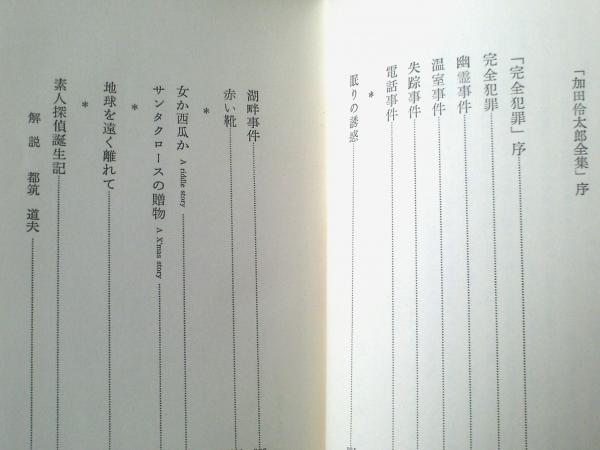 「加田伶太郎全集」序
「完全犯罪」序
完全犯罪
幽霊事件
温室事件
失踪事件
電話事件
*
眠りの誘惑
湖畔事件
赤い靴
*
女か西瓜か A riddle story
サンタクロースの贈物 A X'mas story
*
地球を遠く離れて
*
素人探偵誕生記
解説 都筑道夫